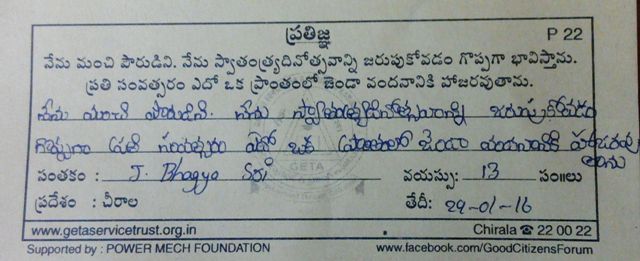 ప్రతిజ్ఞ P 22
నేను మంచి పౌరుడిని. నేను స్వాతంత్ర్యదినోత్సవాన్ని జరుపుకోవడం గొప్పగా భావిస్తాను.
ప్రతి సంవత్సరం ఎదో ఒక ప్రాంతంలో జెండా వందనానికి హాజరవుతాను.
నేను మంచి పౌరుడిని. నేను స్వాతంత్ర్యదినోత్సవాన్ని జరుపుకోవడం
ప్రతి సంవత్సరం ఎదో ఒక జెండా వందనానికి
సంతకం : J. Bhagya Sri వయస్సు: 13 సం॥లు
ప్రదేశం : చీరాల తేదీ: 29-01-16
www.getaservicetrust.org.in Chirala ☎ 22 00 22
Supported by : POWER MECH FOUNDATION www.facebook.com/GoodCitizensForum
GETA